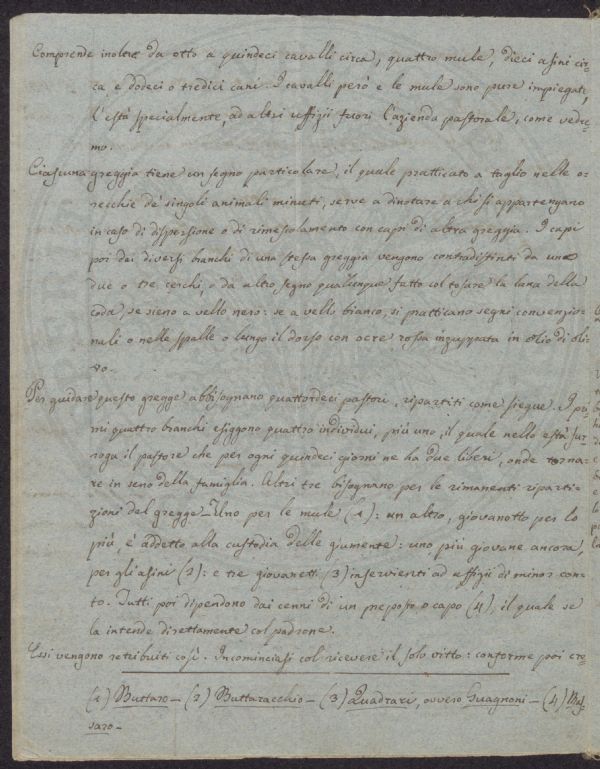 Comprende inoltre da otto a quindeci cavalli circa, quattro mule, dieci asini cir-
ca, e dodeci o tredici cani. I cavalli però e le mule sono pure impiegate,
l'està specialmente, ad altri uffizii fuori l'azienda pastorale, come vedre-
mo.
Ciascuna greggia tiene un segno particolare, il quale pratticato a taglio nelle o-
recchie de' singoli animali minuti, serve a dinotare a chi si appartengano
in caso di dispersione o di rimescolamento con capi di altra greggia. I capi
poi dei diversi branchi di una stessa greggia vengono contradistinti da uno
due o tre, cerchi, o da altro segno qualunque fatto col tosare la lana della
coda, se sieno a vello nero: se a vello bianco, si pratticano segni convenzio-
nali o nelle spalle o lungo il dorso con ocre rossa inzuppata in olio di oli-
vo.
Per guidare questo gregge abbisognano quattordeci pastori, ripartiti come siegue. I pri
mi quattro branchi esiggono quattro individui, più uno, il quale nello està sur
roga il pastore che per ogni quindeci giorni ne ha due liberi, onde torna-
re in seno della famiglia. Altri tre bisognano per le rimanenti riparti-
zioni del gregge_Uno per le mule (1): un altro, giovanotto per lo
più, è addetto alla custodia delle giumente: uno più giovane ancora,
per gli asini (2): e tre giovanett (3) inservienti ad uffizii di minor con-
to. Tutti poi dipendono dai cenni di un preposto o capo (4), il quale se
la intende direttamente col padrone.
Essi vengono retribuiti così. Incominciasi col ricevere il solo vitto: conforme poi cre-
(1) Buttaro_(2) Buttaracchio_(3) Quadrari, ovvero Guagnoni_(4) Mas-
saro_